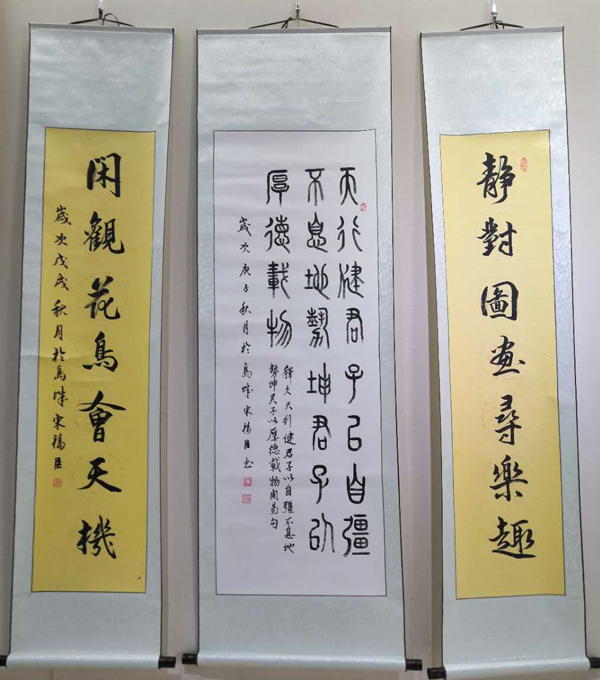 静對圖画尋樂趣
天行健君子以自彊
不息地勢坤君子以
厚德載物
釋文天行健君子以自彊不息地
勢坤君子以厚德載物周易句
歲次庚子秋月於烏城宋臣书
閑觀花鳥會天機
歲次戊戌秋月於烏城宋臣